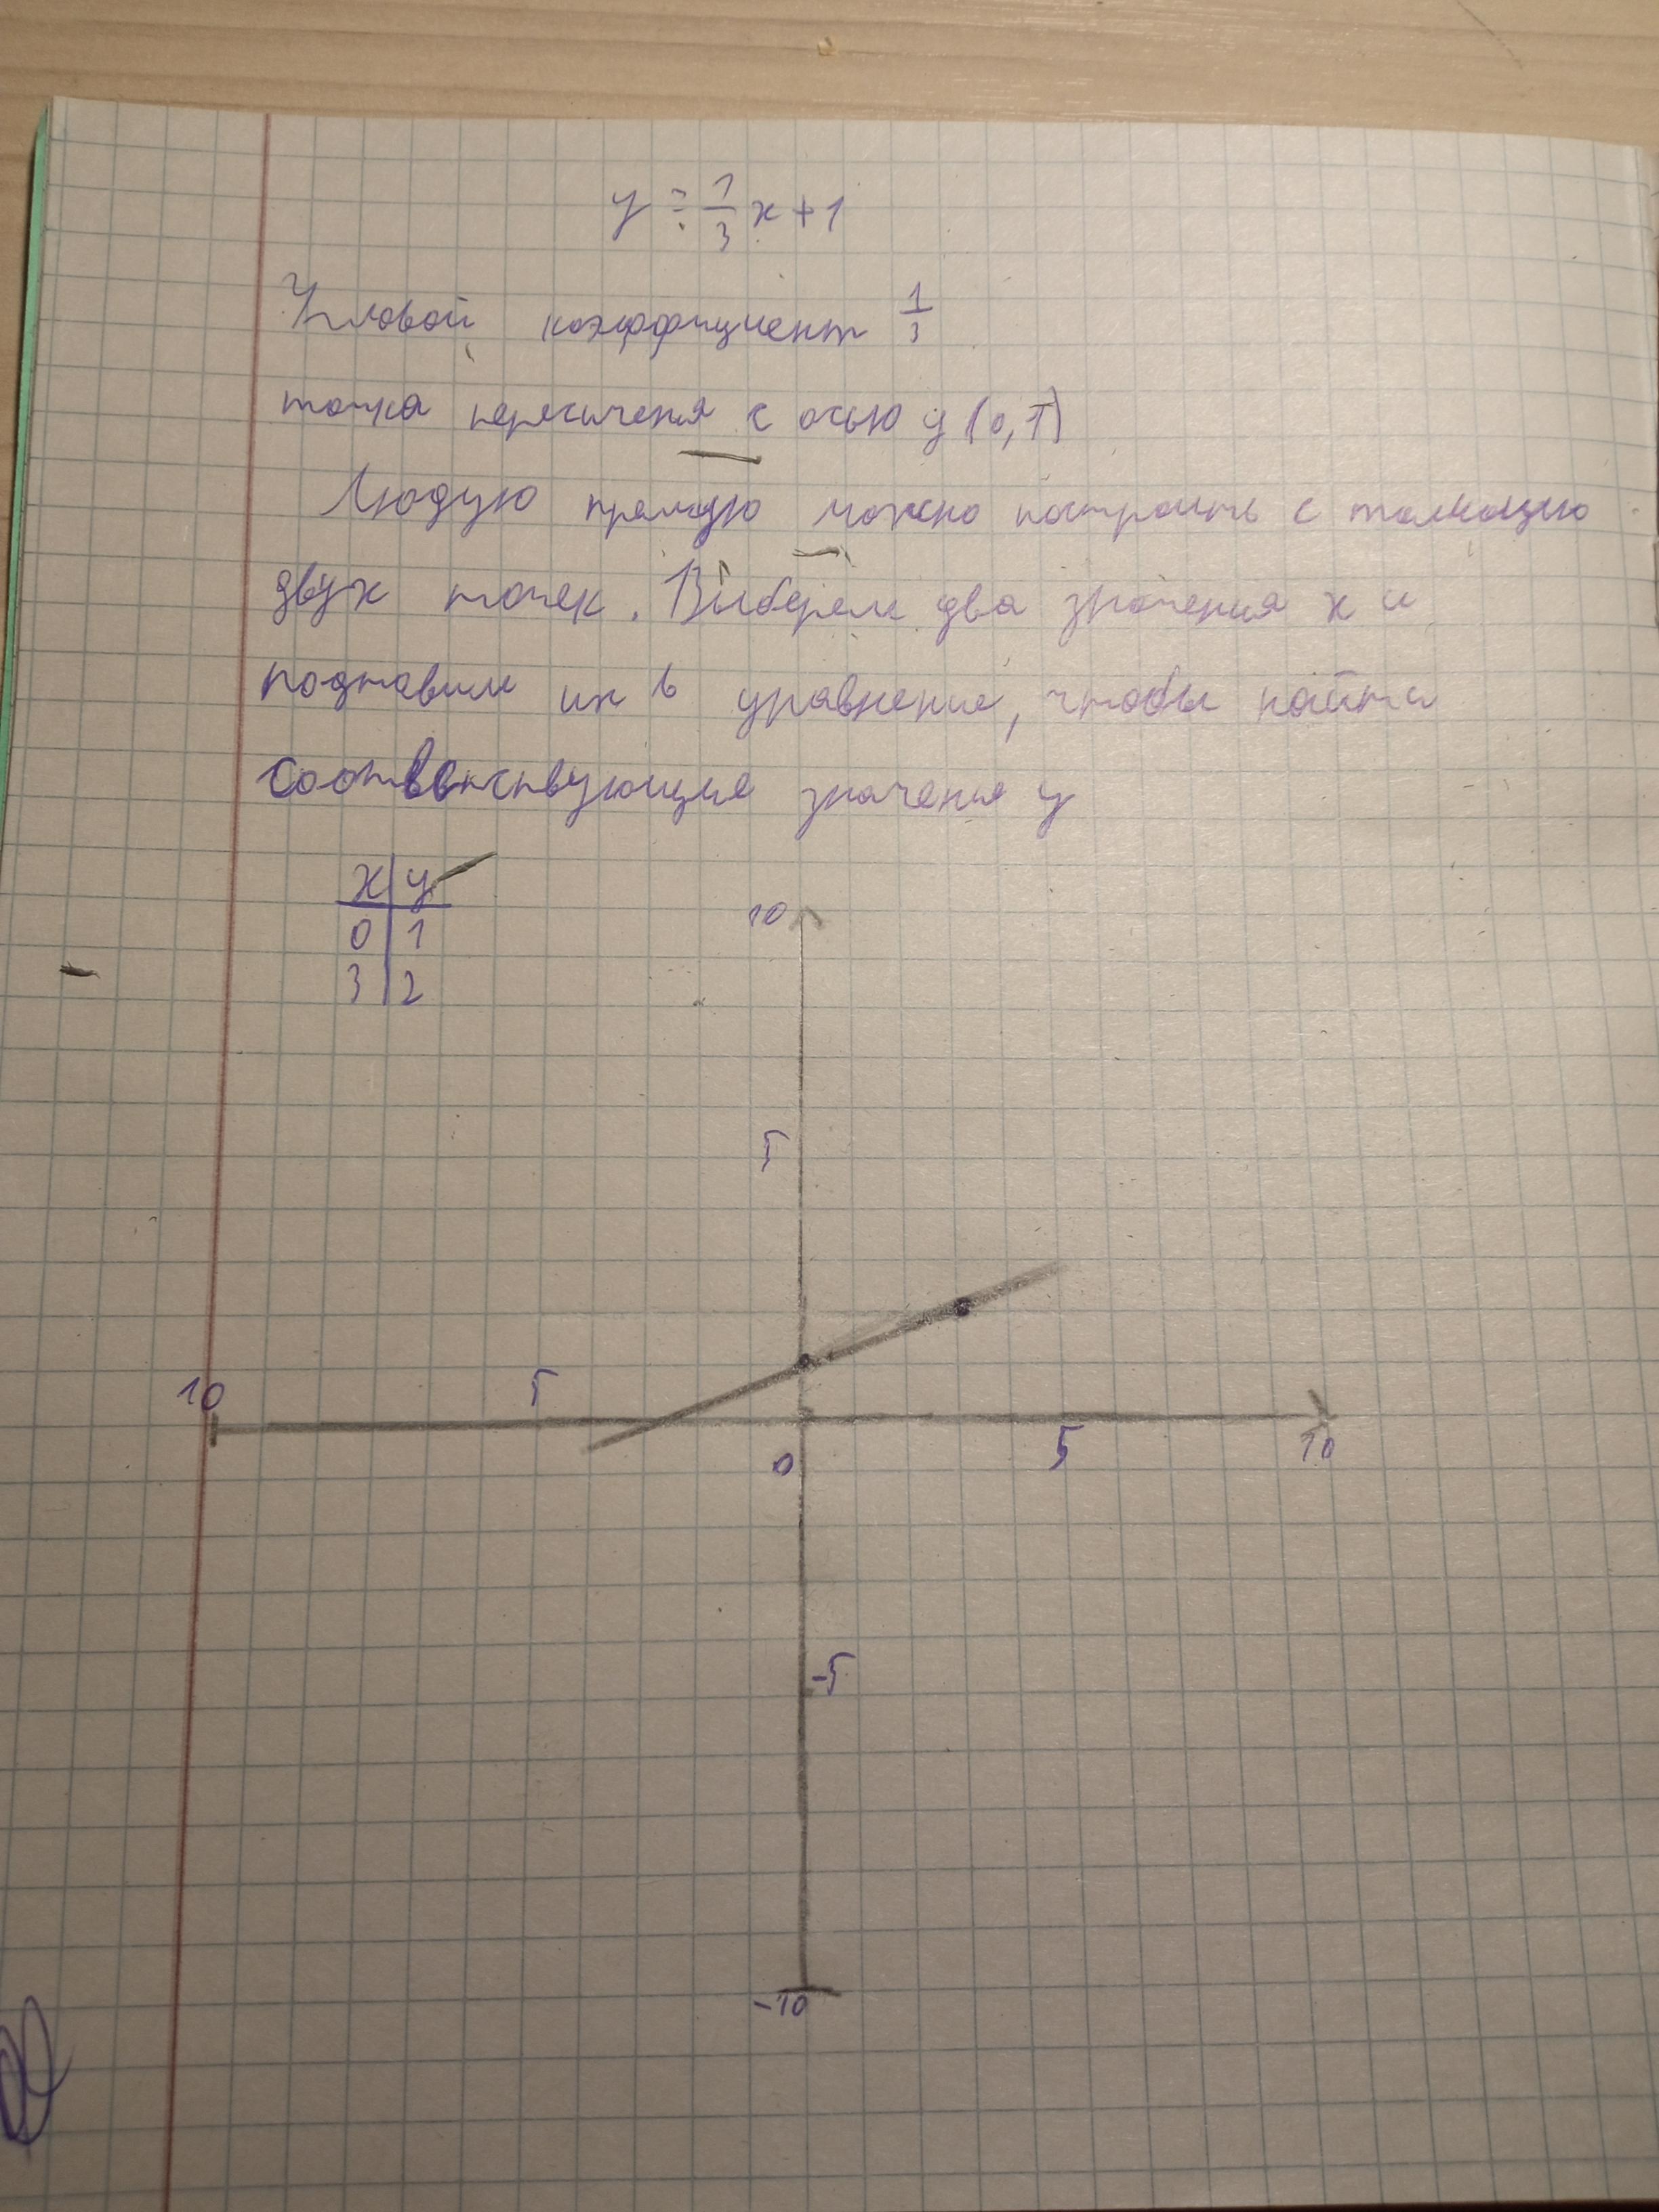 y = 1/3 x + 1
Угловой коэффициент 1/3
точка пересичения с осью y (0,1)
Любую прямую можно построить с помощью
двух точек. Выберем два значения x и
подставим их в уравнение, чтобы найти
соответствующие значения y
x y
0 1
3 2
10
5
10 5
0 5 10
-5
-10